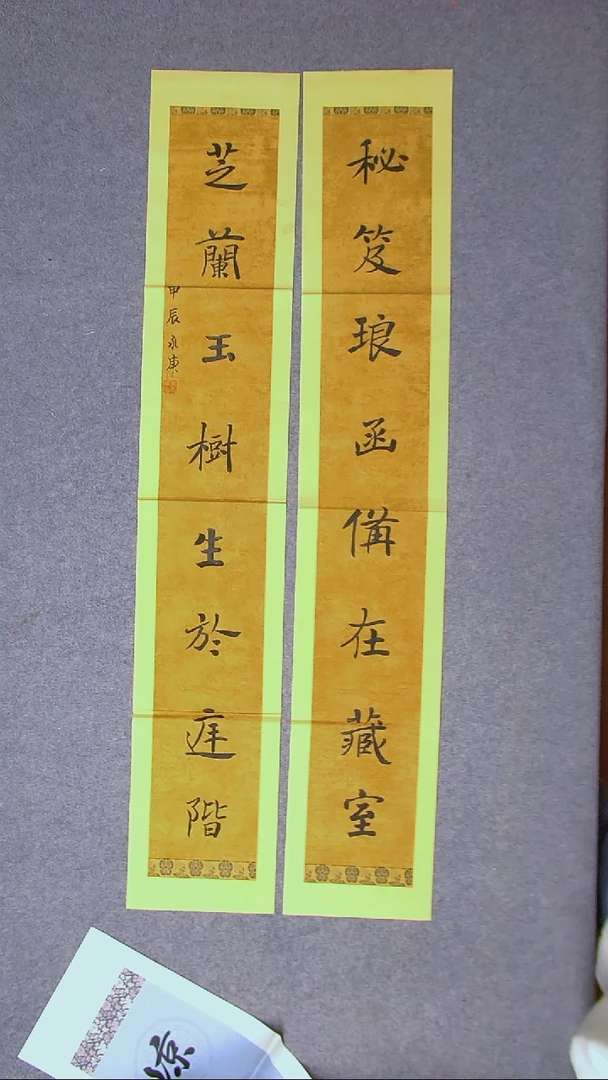 秘笈琅函備在藏室
芝蘭玉樹生於庭階
甲辰永康